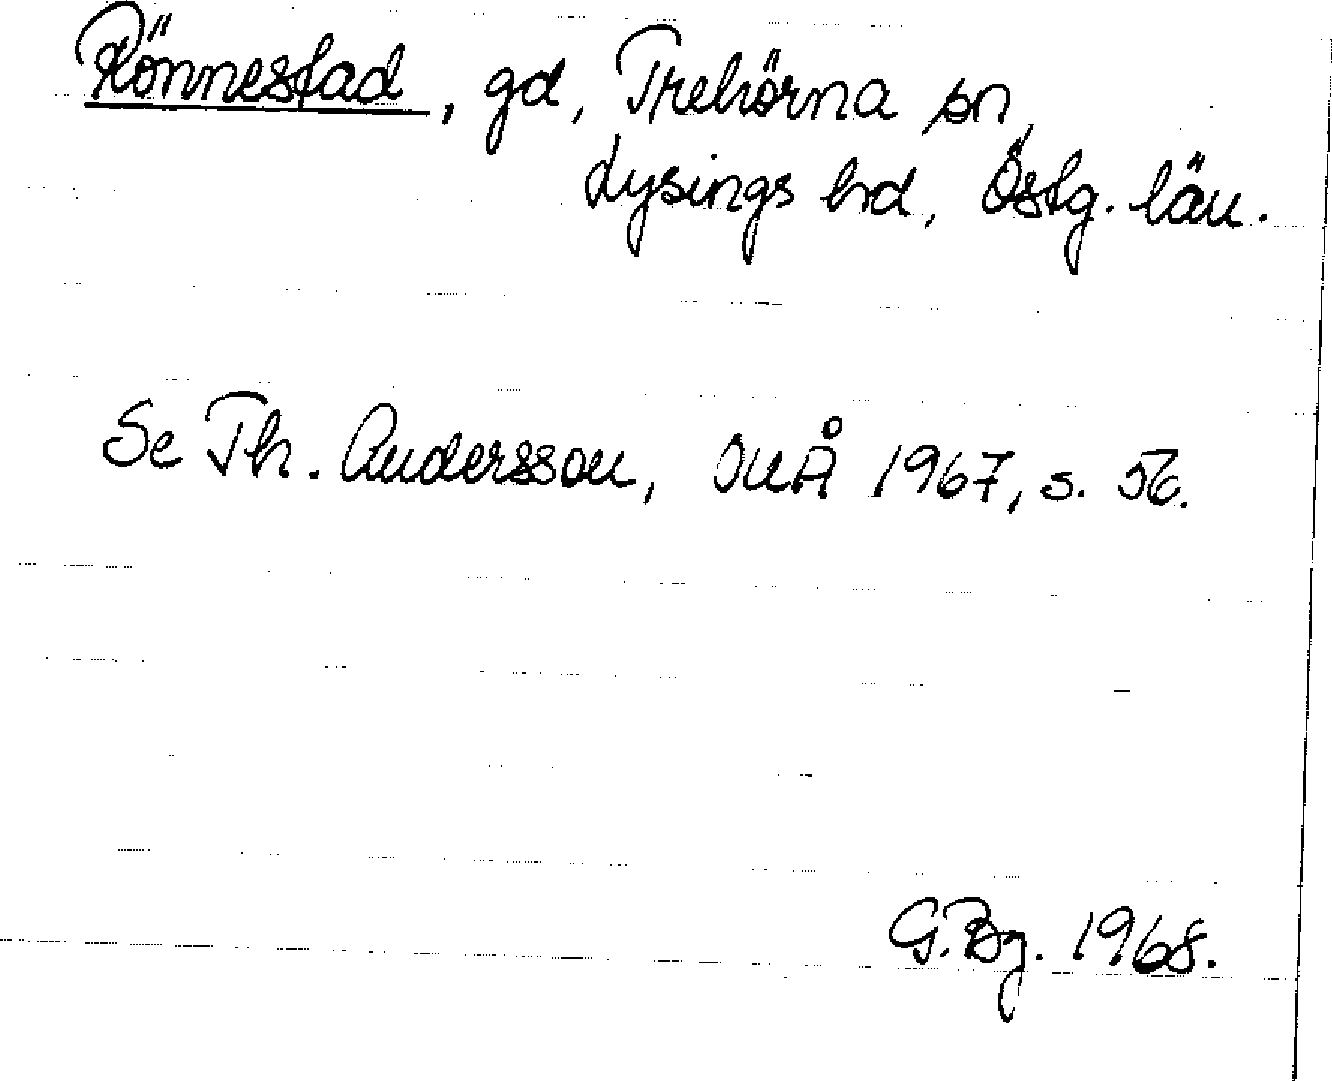 Rönnestad, gd, Trehörna sn,
Lysings hd, Östg. län.
Se Th. Andersson, OUÅ 1967, s. 56.
G.Bg. 1968.